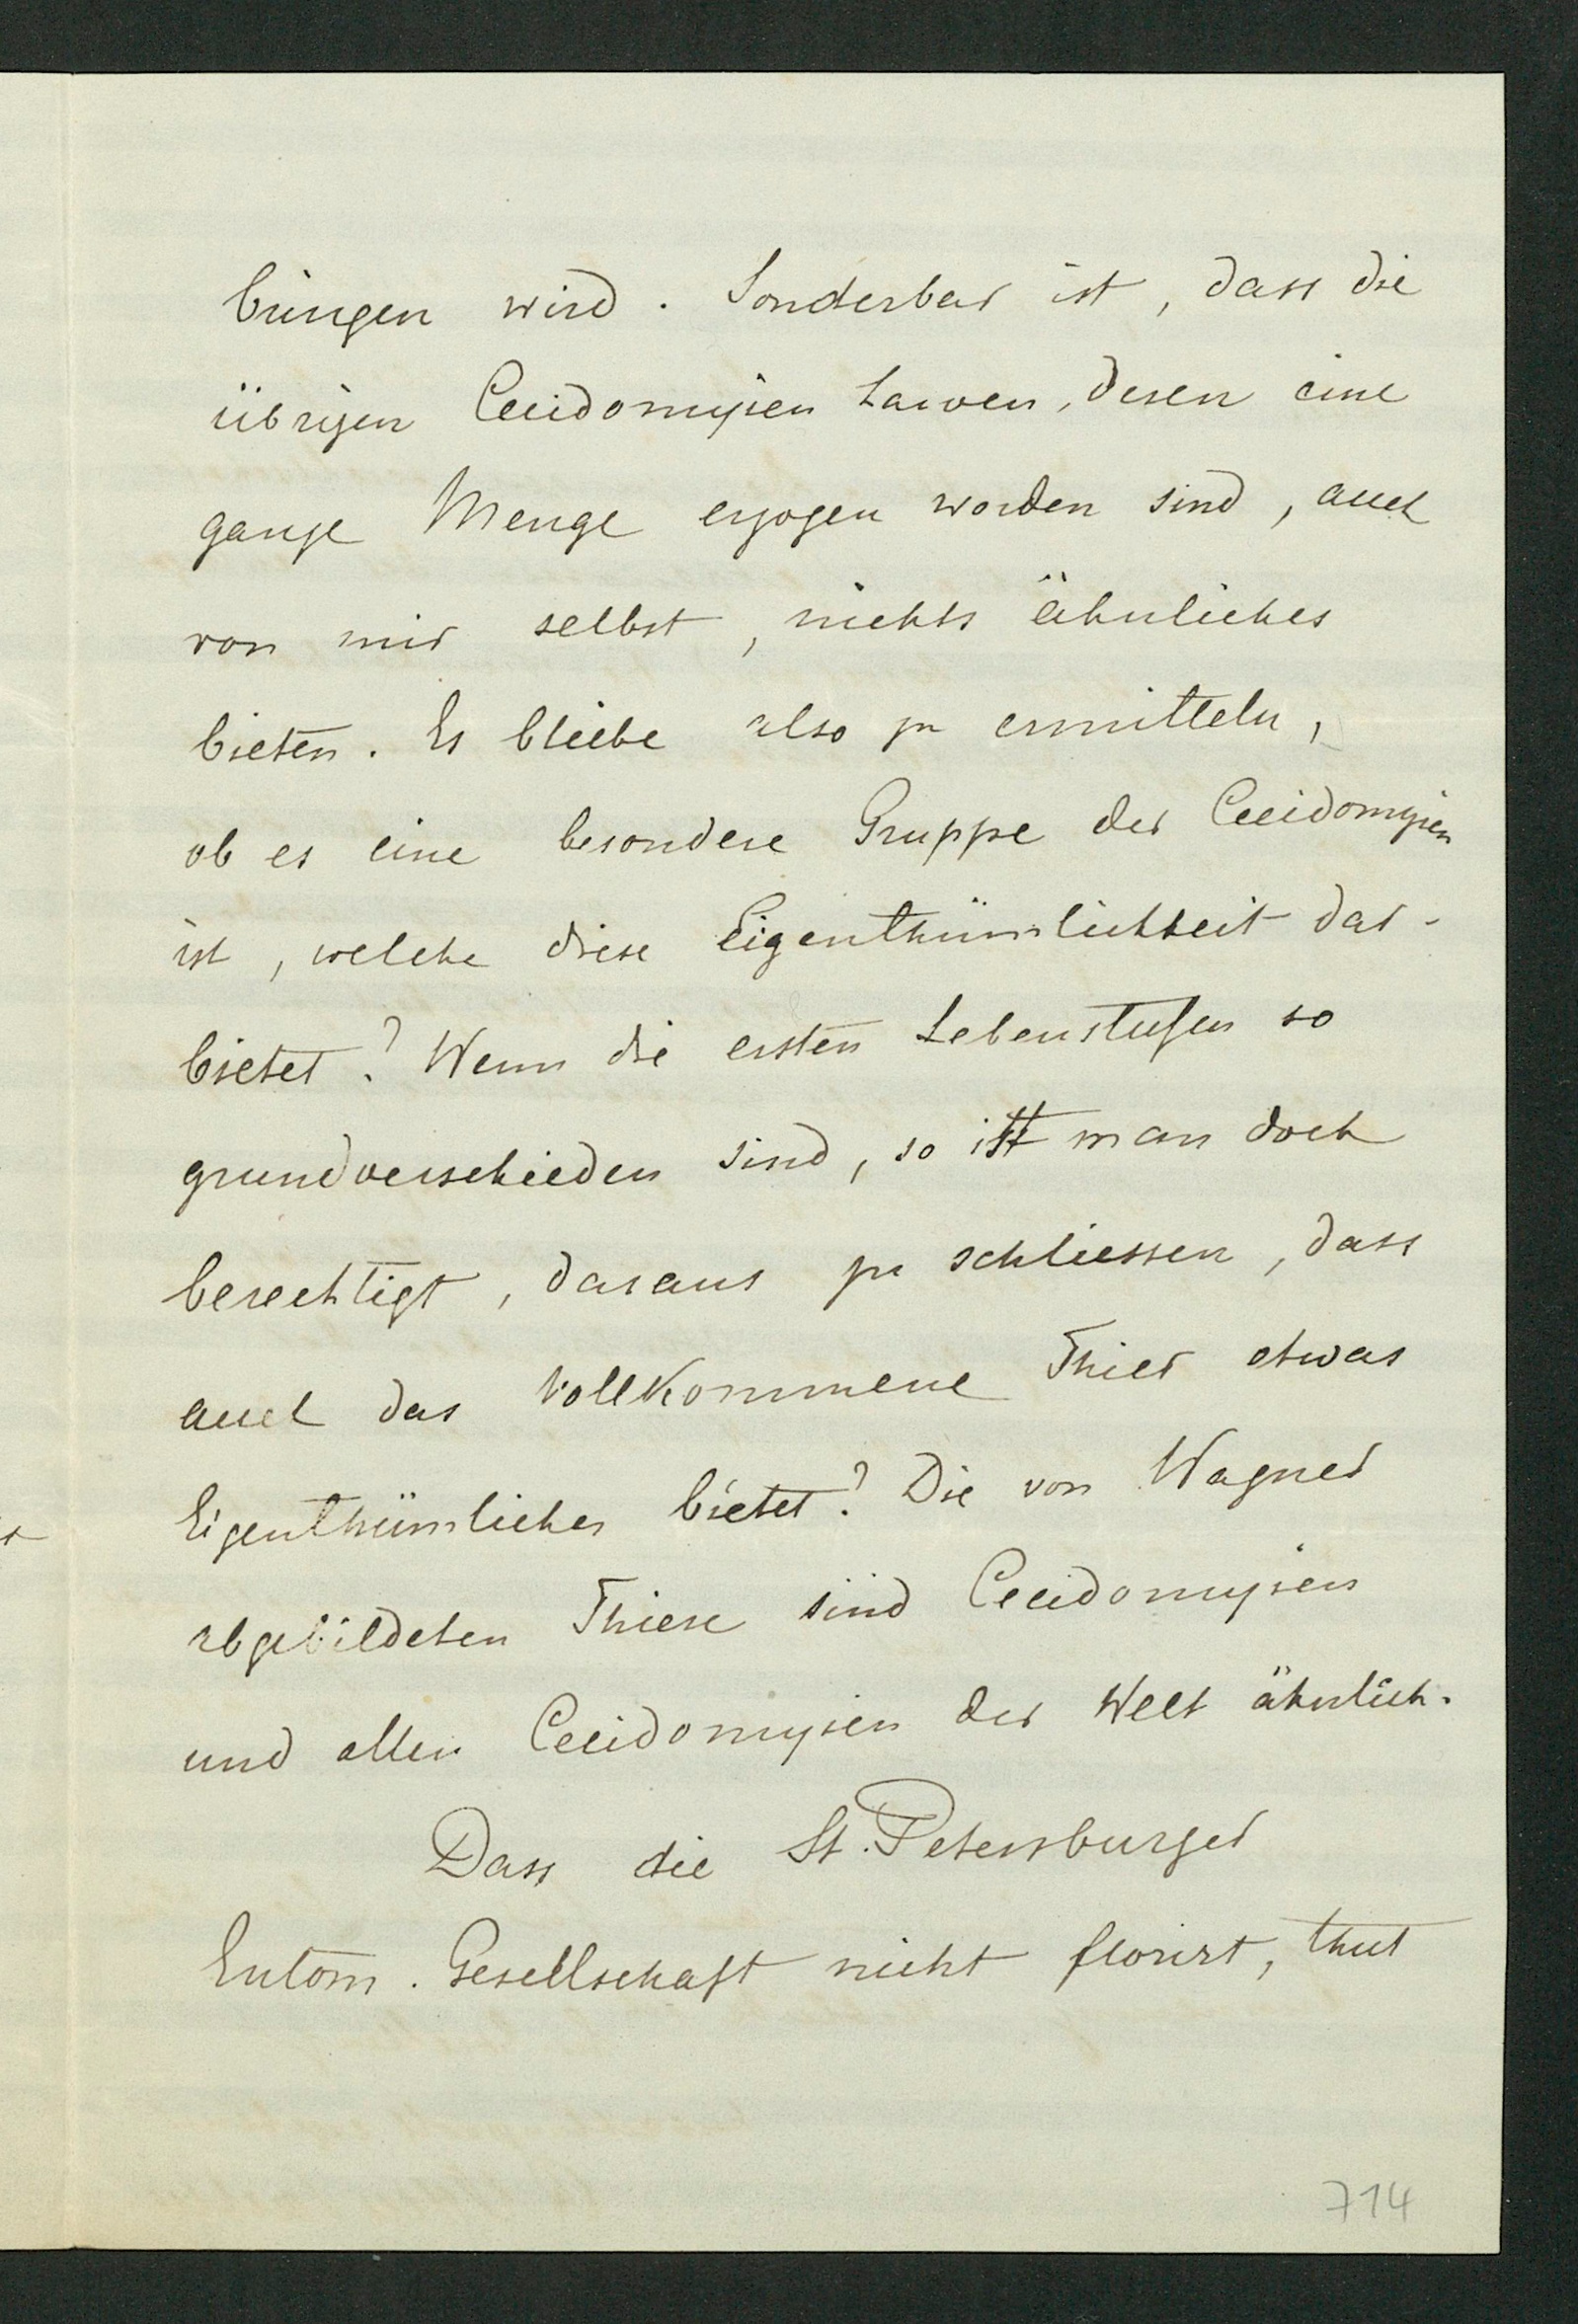 bringen wird. Sonderbar ist, dass die
übrigen Cecidomyien Larven, deren eine
ganze Menge erzogen worden sind, auch
von mir selbst, nichts ähnliches
bieten. Es bliebe also zu ermitteln,
ob es eine besondere Gruppe der Cecidomyien
ist, welche diese Eigenthümlichkeit dar-
bietet? Wenn die ersten Lebenstufen so
grundverschieden sind, so ist man doch
berechtigt, daraus zu schliessen, dass
auch das vollkommene Thier etwas
Eigenthümliches bietet? Die von Wagner
abgebildeten Thiere sind Cecidomyien
und allen Cecidomyien der Welt ähnlich.
Dass die St. Petersburger
Entom. Gesellschaft nicht florirt, thut
714